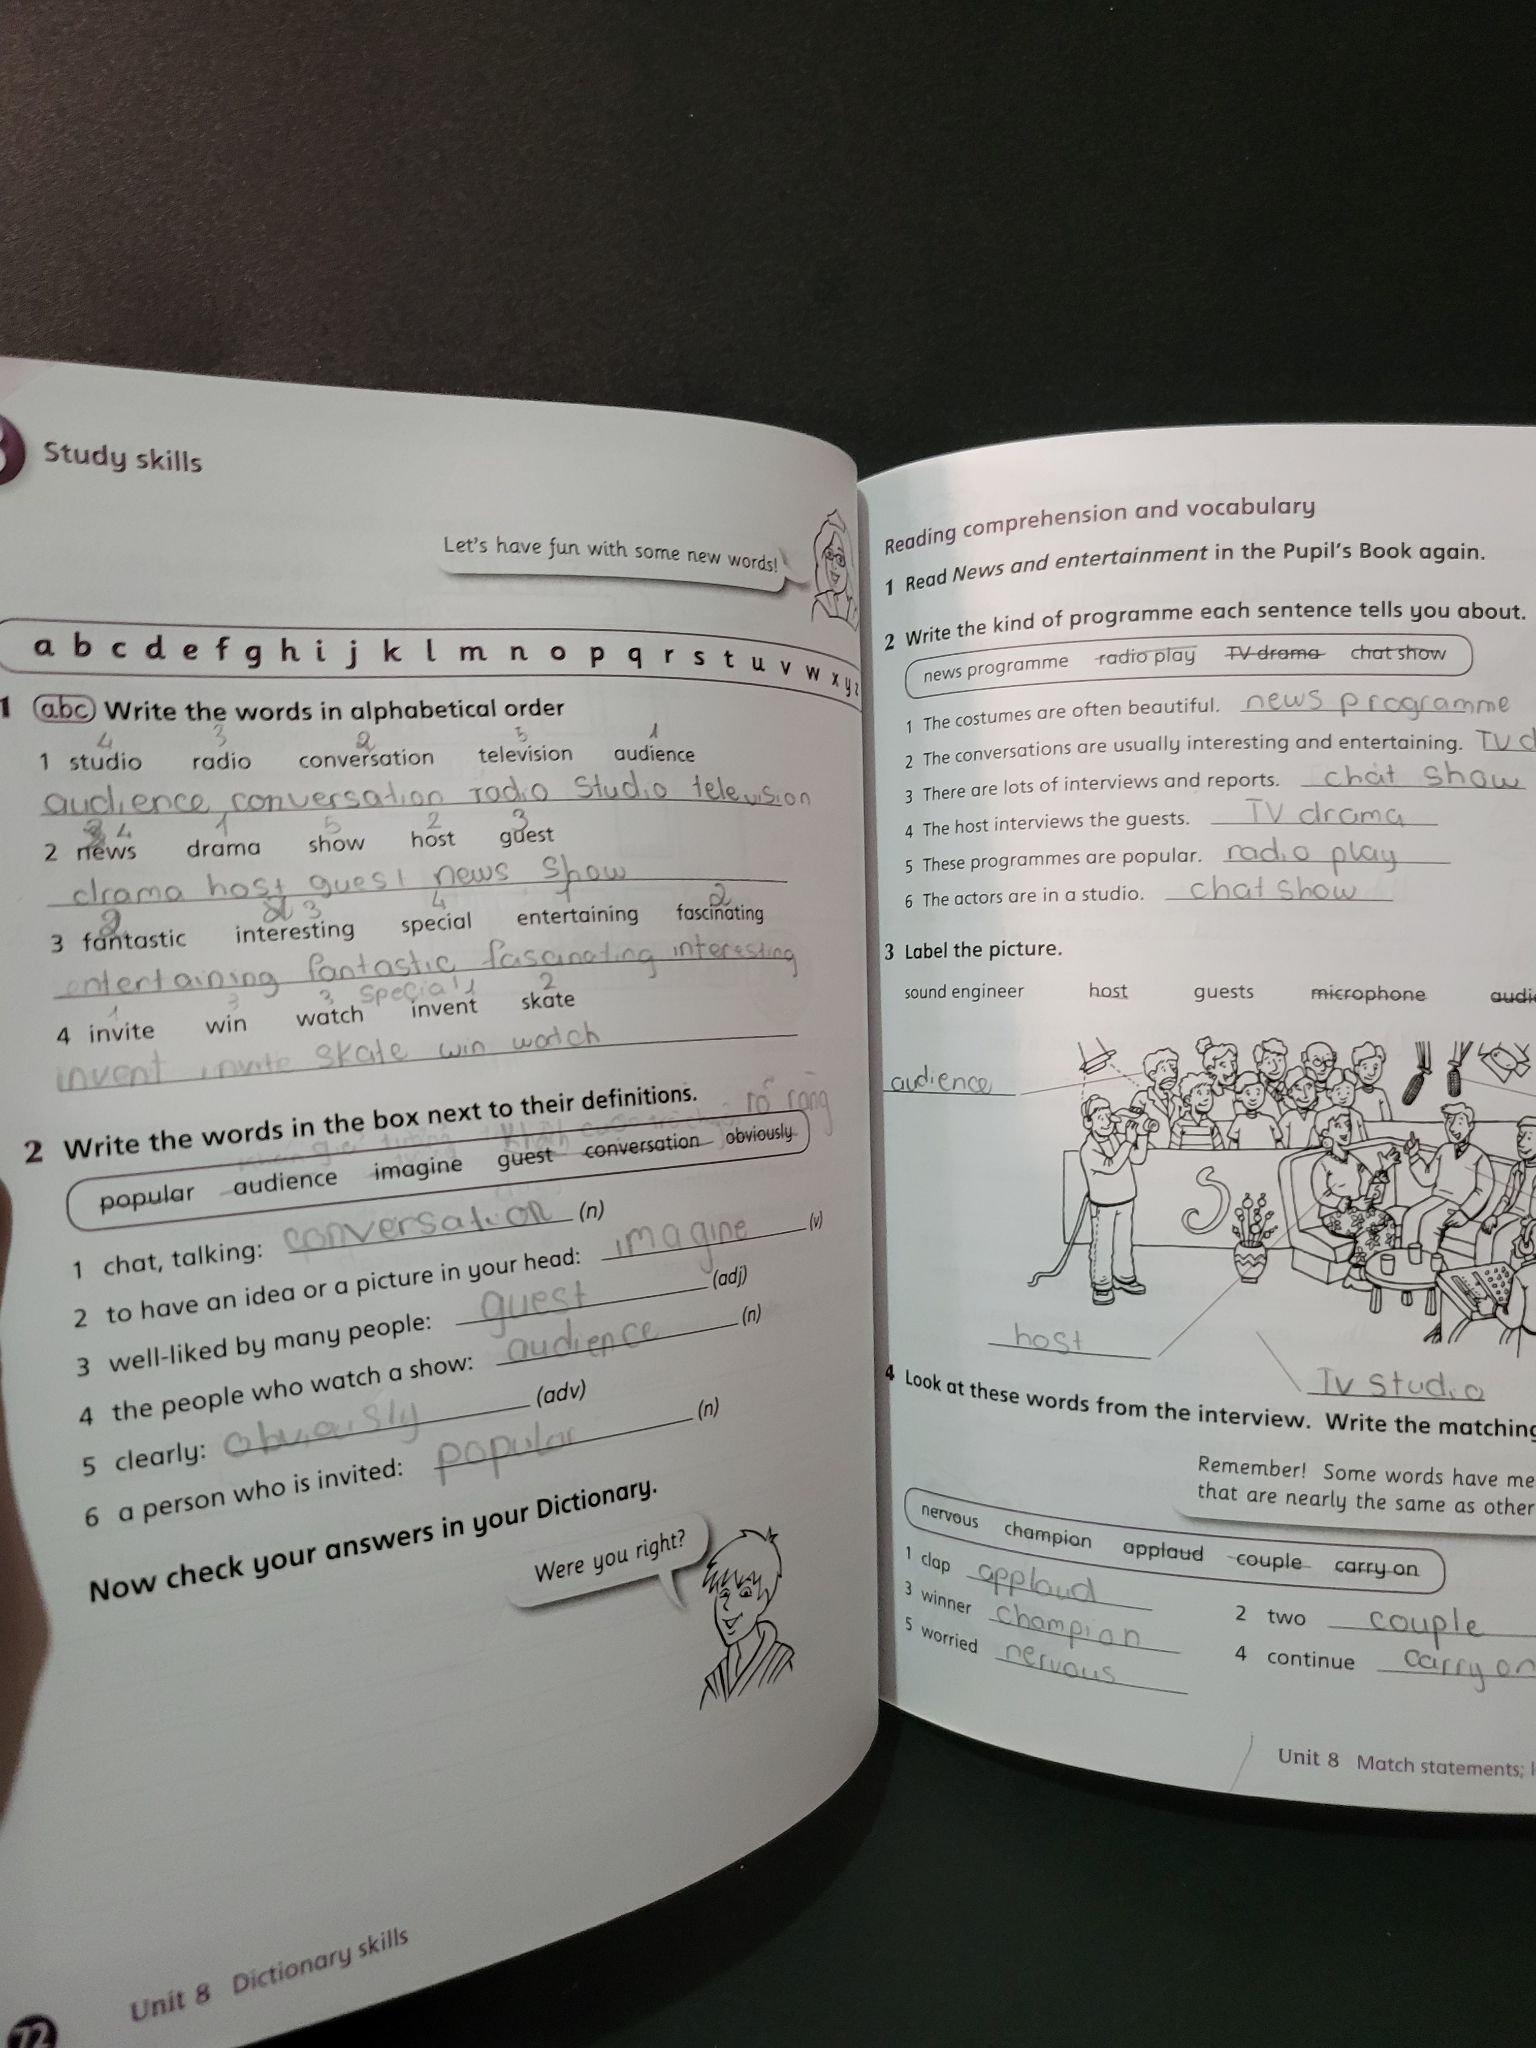 Study skills
Let's have fun with some new words!
a b c d e f g h i j k l m n o p q r s t u v w x y z
1 abc Write the words in alphabetical order
4 3 2 5 1
1 studio radio conversation television audience
audience conversation radio studio television
4 1 5 2 3
2 news drama show host guest
drama host guest news show
2 3 4 1 2
3 fantastic interesting special entertaining fascinating
entertaining fantastic fascinating interesting
special
1 3 3 1 2
4 invite win watch invent skate
invent invite skate win watch
2 Write the words in the box next to their definitions.
rõ ràng
popular audience imagine guest conversation obviously
1 chat, talking: conversation (n)
2 to have an idea or a picture in your head: imagine (v)
3 well-liked by many people: guest (adj)
4 the people who watch a show: audience (n)
5 clearly: obviously (adv)
6 a person who is invited: popular (n)
Now check your answers in your Dictionary.
Were you right?
Unit 8 Dictionary skills
72
Reading comprehension and vocabulary
1 Read News and entertainment in the Pupil's Book again.
2 Write the kind of programme each sentence tells you about.
news programme radio play TV drama chat show
1 The costumes are often beautiful. news programme
2 The conversations are usually interesting and entertaining. TV d
3 There are lots of interviews and reports. chat show
4 The host interviews the guests. TV drama
5 These programmes are popular. radio play
6 The actors are in a studio. chat show
3 Label the picture.
sound engineer host guests microphone audi
audience
host
TV studio
4 Look at these words from the interview. Write the matching
Remember! Some words have me
that are nearly the same as other
nervous champion applaud couple carry on
1 clap applaud
2 two couple
3 winner champion
4 continue carry on
5 worried nervous
Unit 8 Match statements; l